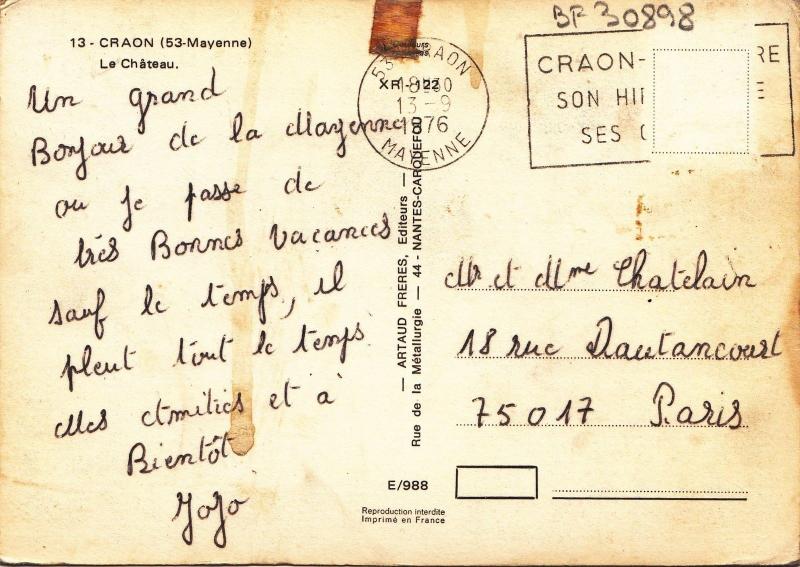 13 - CRAON (53-Mayenne)
Le Château.
Un grand
Bonjour de la Mayenne
ou je passe de
très Bonnes vacances
sauf le temps, il
pleut tout le temps
Mes amitiés et à
Bientôt
JoJo
BF 30898
XR - 122
53 CRAON
18H30
13-9
1976
MAYENNE
CRAON-
RE
SON HI
E
SES
— ARTAUD FRERES, Editeurs —
Rue de la Métallurgie — 44 - NANTES-CARQUEFOU
Mr et Mme Chatelain
18 rue Dautancourt
75017 Paris
E/988
Reproduction interdite
Imprimé en France